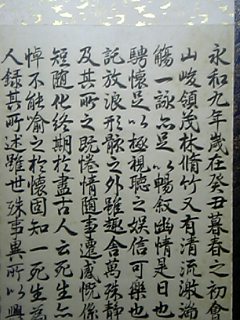 永和九年歲在癸丑暮春之初會
山峻領茂林脩竹又有清流激湍
觴一詠亦足以暢叙幽情是日也
騁懷足以極視聽之娛信可樂也
託放浪形骸之外雖趣舍萬殊靜
及其所之既惓情隨事遷感慨係
短隨化終期於盡古人云死生亦
悼不能喻之於懷固知一死生為
人錄其所述雖世殊事異所以興